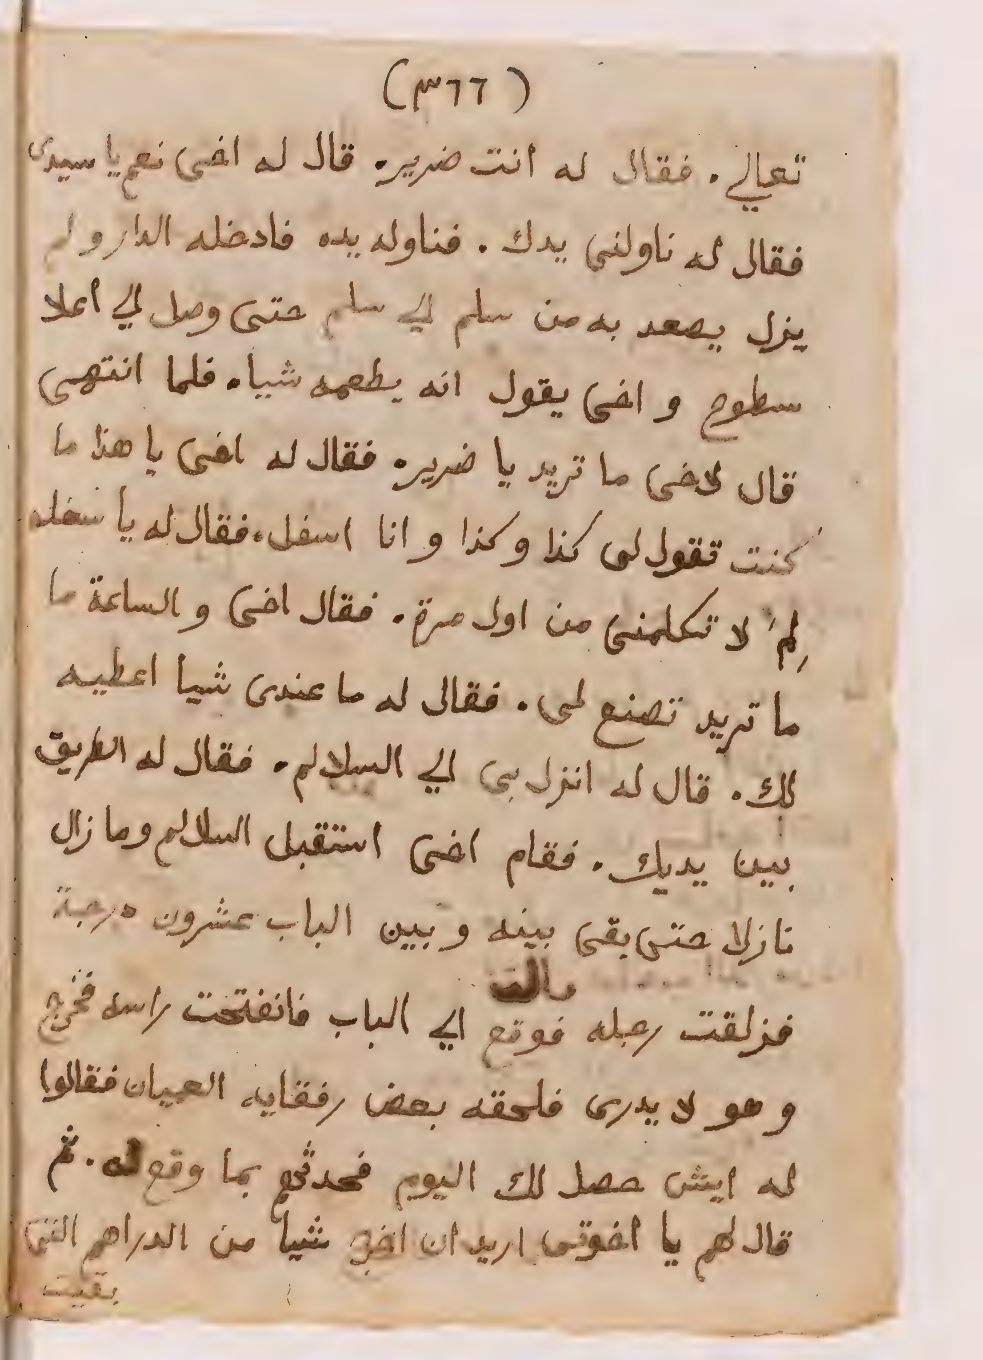 (٣٦٦)
تعالي. فقال له انت ضرير. قال له اخى نعم يا سيدى
فقال له ناولنى يدك. فناوله يده فادخله الدار ولم
يزل يصعد به من سلم الي سلم حتى وصل الي أعلا
سطوح و اخى يقول انه يطعمه شيا. فلما انتهى
قال لاخى ما تريد يا ضرير. فقال له اخى يا هذا ما
كنت تقول لى كذا وكذا وانا اسفل. فقال له يا سفله
لِمَ لا تكلمنى من اول مرة. فقال اخى و الساعة ما
ما تريد تصنع لى. فقال له ما عندى شيا اعطيه
لك. قال له انزل بى الي السلالم. فقال له الطريق
بين يديك. فقام اخى استقبل السلالم وما زال
نازلا حتى بقى بينه وبين الباب عشرون درجة
فزلقت رجله فوقع الي الباب فانفتحت راسه فخرج
و هو لا يدرى فلحقه بعض رفقايه العميان فقالوا
له ايش حصل لك اليوم فحدثهم بما وقع له. ثم
قال لهم يا اخوتى اريد ان اخرج شيا من الدراهم التى
بقيت